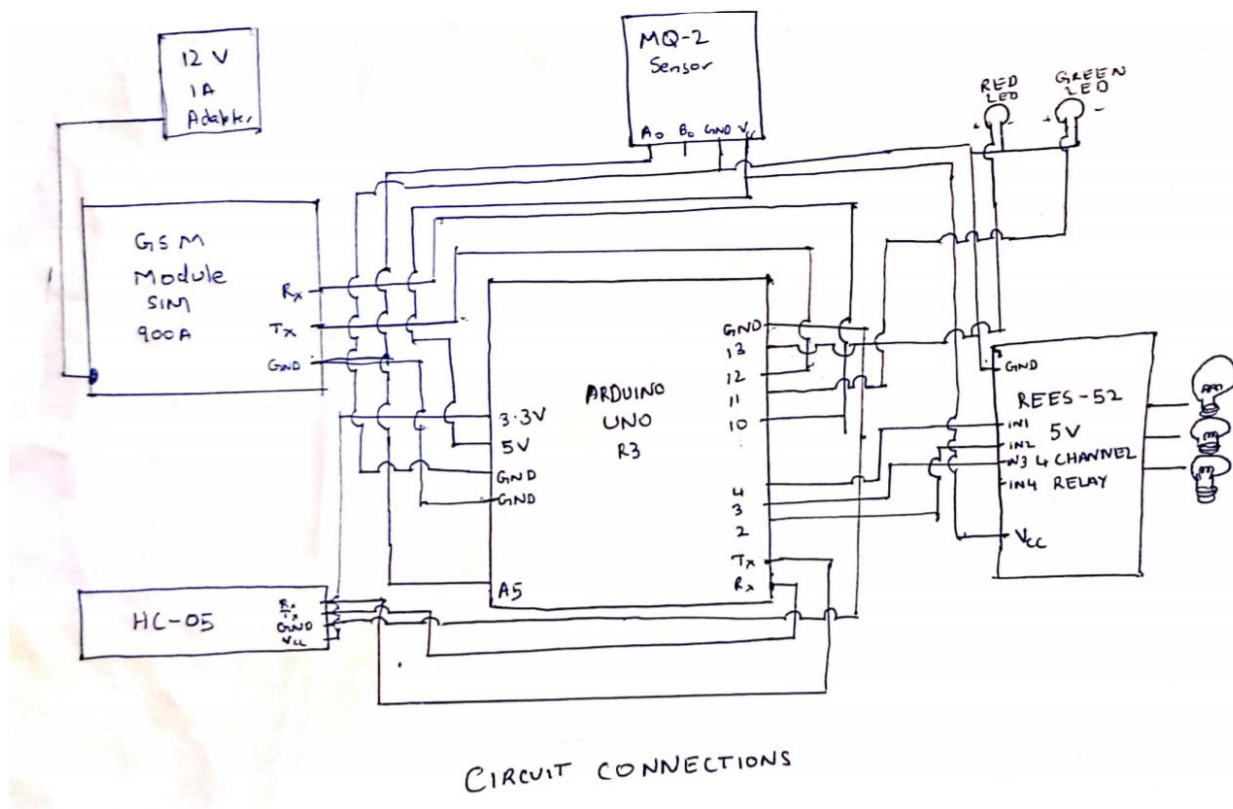 12 V
1A
Adapter
MQ-2
Sensor
A0 B0 GND Vcc
RED
LED
+ -
GREEN
LED
+ -
GSM
Module
SIM
900A
Rx
Tx
GND
ARDUINO
UNO
R3
3.3V
5V
GND
GND
A5
GND
13
12
11
10
4
3
2
Tx
Rx
REES-52
5V
4 CHANNEL
RELAY
GND
IN1
IN2
IN3
IN4
Vcc
HC-05
Rx
Tx
GND
Vcc
CIRCUIT CONNECTIONS